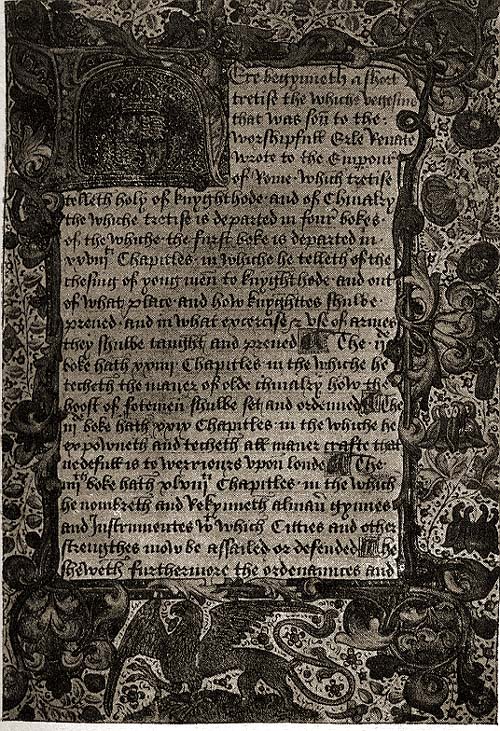 Ere begynneth a short
tretise the whiche vegesius
that was son to the
Worshipfull Erle Renate
wrote to the Empour
of Rome Which tretise
telleth holy of knyghthode and of Chiualry
the whiche tretise is departed in four bokes
of the whiche the first boke is departed in
xxviij Chapitles in whiche he telleth of the
chesing of yong men to knyghthode and out
of what place and how knyghttes shulbe
preued and in what excercise & vse of armes
they shulbe taught and preued The ij
boke hath Chapitles in the whiche he
techeth the maner of olde chiualry how the
hoost of fotemen shulbe set and ordenned The
iij boke hath Chapitles in the whiche he
expowneth and techeth all maner crafte that
nedefull is to werriours vpon londe The
boke hath xlviij Chapitles in the which
he nombreth and Rekynneth alman gynnes
and Instrumentes wt which Citties and other
strengthes mow be assailed or defended he
sheweth furthermore the ordenaunces and